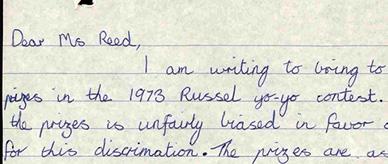 Dear Ms Reed,
I am writing to bring to
prizes in the 1973 Russel yo-yo contest.
the prizes is unfairly biased in favor
for this discrimation. The prizes are as